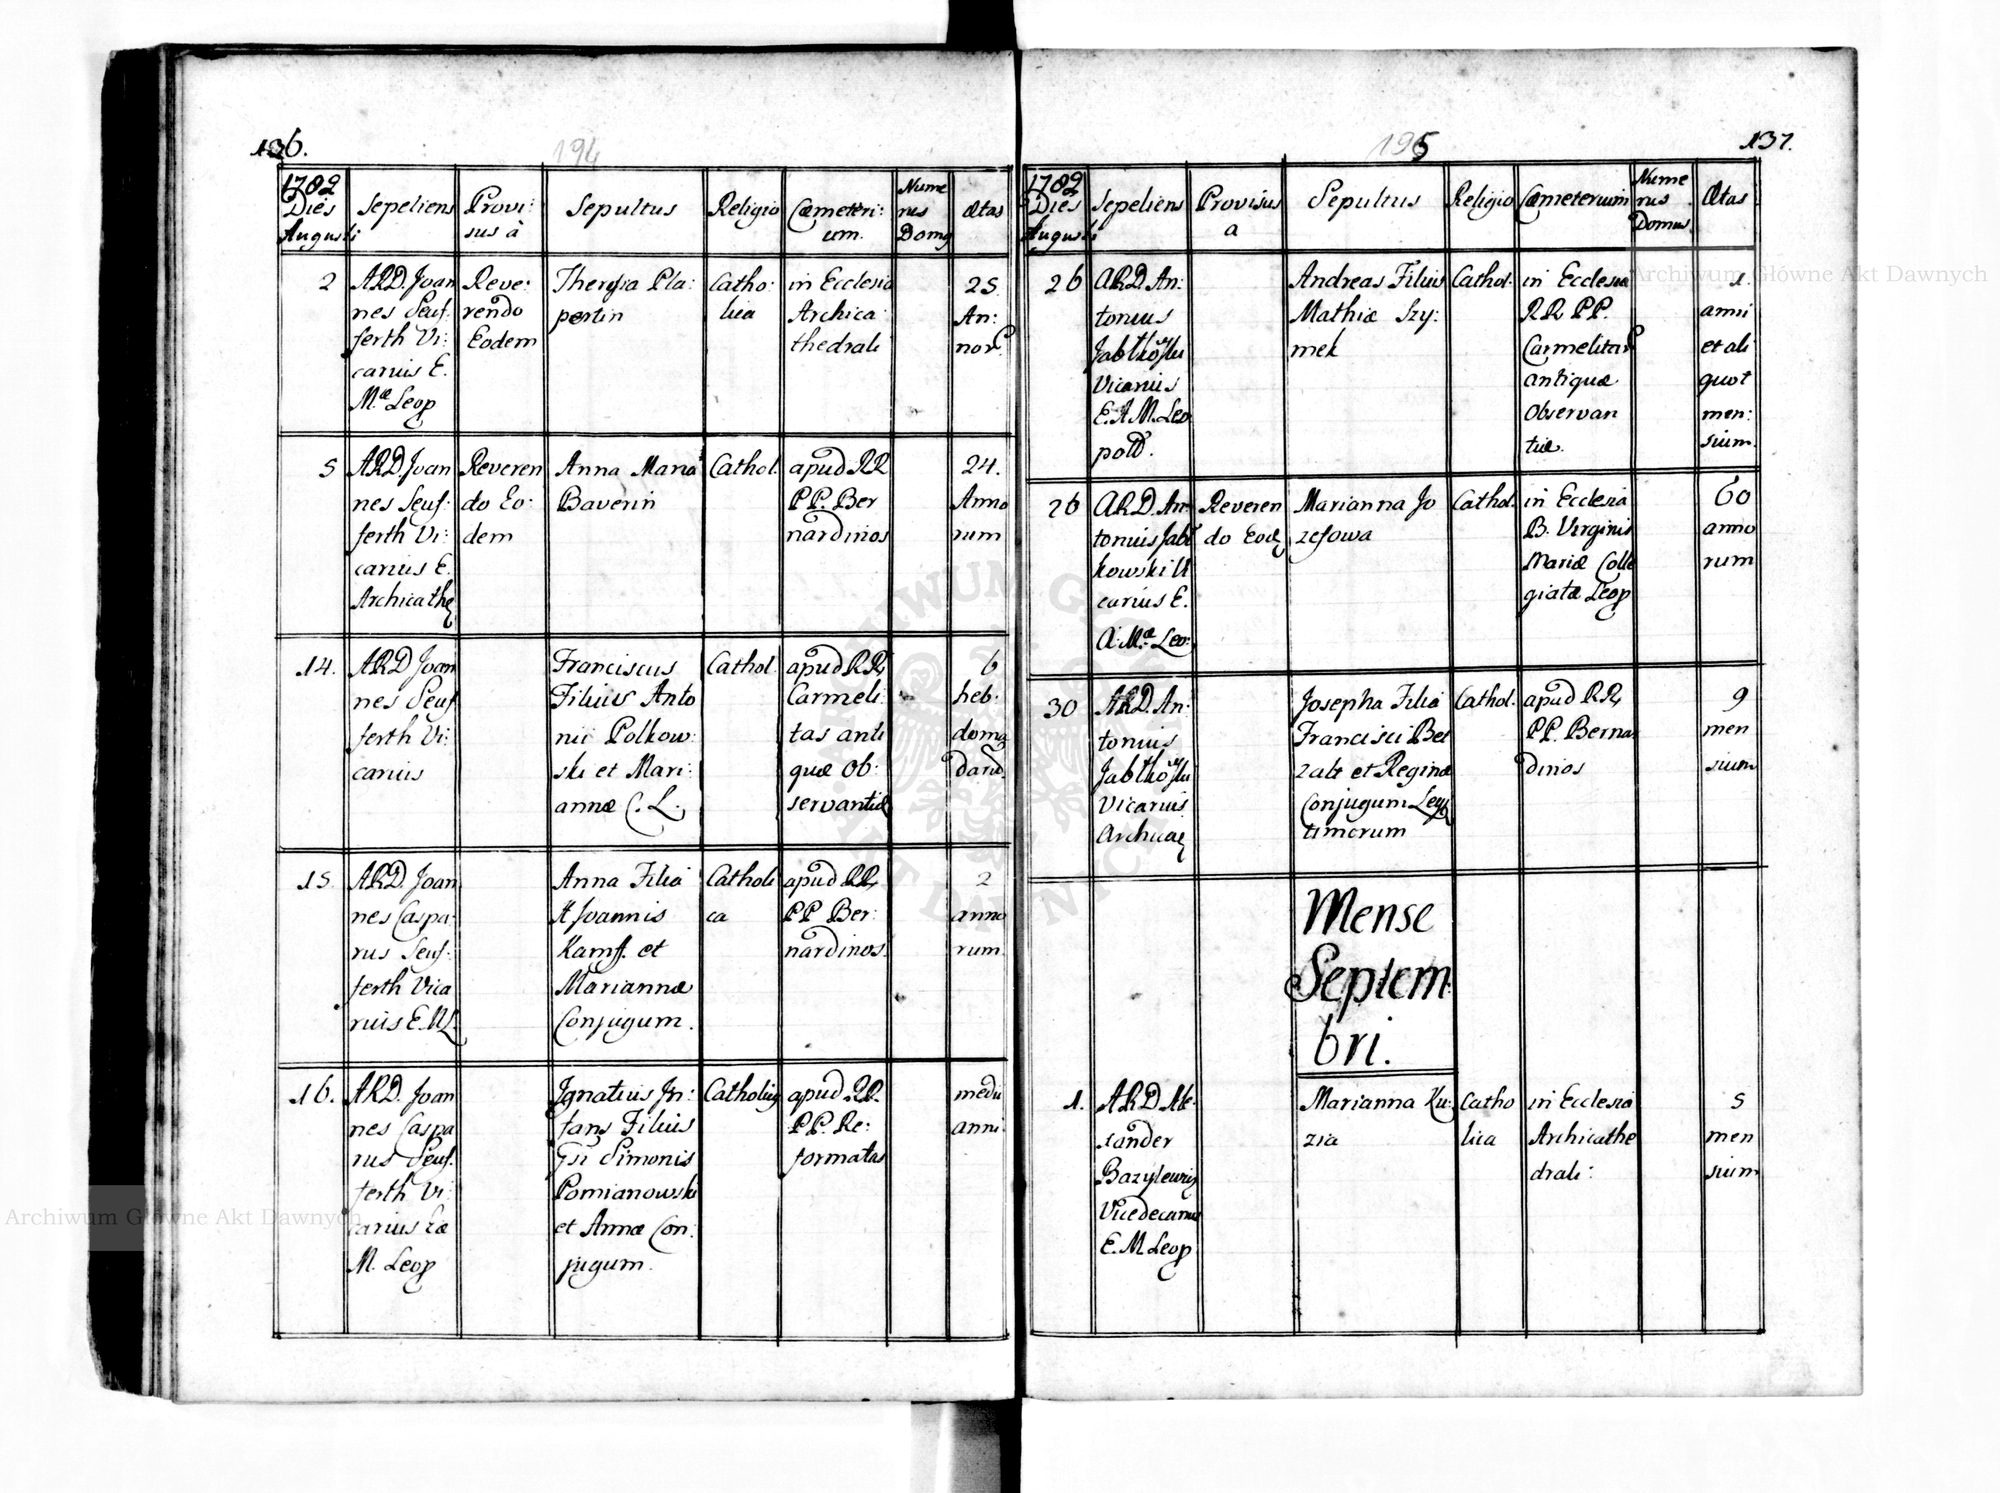 136.
194
1782
Dies
Augusti
Sepeliens
Provi:
sus à
Sepultus
Religio
Cæmeteri:
um.
Nume
rus
Domus
Ætas
2
ARD. Joan
nes Seuf:
ferth Vi:
carius E.
M.æ Leop
Reve:
rendo
Eodem
Theresia Pla:
pertin
Catho:
lica
in Ecclesia
Archica:
thedrali
25.
An:
nor.
5
ARD Joan
nes Seuf:
ferth Vi:
carius E.
Archicathe
Reveren
do Eo:
dem
Anna Maria
Baverin
Cathol.
apud RR
PP. Ber
nardinos
24.
Anno
rum
14.
ARD Joan
nes Seuf
ferth Vi:
carius
Franciscus
Filius Anto
nii Polkow:
ski et Mari:
annæ C. L.
Cathol.
apud RR
Carmeli:
tas anti
quæ Ob:
servantiæ
6
heb:
doma
daru.
15.
ARD. Joan
nes Caspa:
rus Seuf:
ferth Vica
rius E. M L.
Anna Filia
Joannis
Kampf. et
Mariannæ
Conjugum.
Catholi
ca
apud RR
PP Ber:
nardinos.
2
anno
rum
16.
ARD. Joan
nes Caspa
rus Seuf.
ferth Vi:
carius Eæ
M. Leop
Ignatius In:
fans Filius
Gsi Simonis
Pomianowski
et Annæ Con:
jugum.
Catholicus
apud RR.
PP. Re:
formatas
medii
anni.
137.
195
1782
Dies
Augusti
Sepeliens
Provisus
a
Sepultus
Religio
Cæmeterium
Nume
rus
Domus
Ætas
26
ARD An:
tonius
Jabłkowski
Vicarius
E. A M. Leo
pold.
Andreas Filius
Mathiæ Szy:
mek
Cathol.
in Ecclesia
RR PP.
Carmelitar
antiquæ
Observan
tiæ.
1.
anni
et ali
quot
men:
sium.
26
ARD. An:
tonius Jabł
kowski Vi
carius E.
A: M.æ Leo:
Reveren
do Eode
Marianna Jo
zefowa
Cathol.
in Ecclesia
B. Virginis
Mariæ Colle
giatæ Leop
60
anno
rum
30
ARD. An:
tonius
Jabłkowski
Vicarius
Archicae
Josepha Filia
Francisci Bet
zalt et Reginæ
Conjugum Legi
timorum
Cathol.
apud RR,
PP. Berna
dinos
9
men
sium
Mense
Septem
bri.
1.
ARD Ale
xander
Bazylewicz
Vicedecanus
E. M Leop
Marianna Ku:
zia
Catho
lica
in Ecclesia
Archicathe
drali:
5
men
sium
Archiwum Główne Akt Dawnych
Archiwum Główne Akt Dawnych